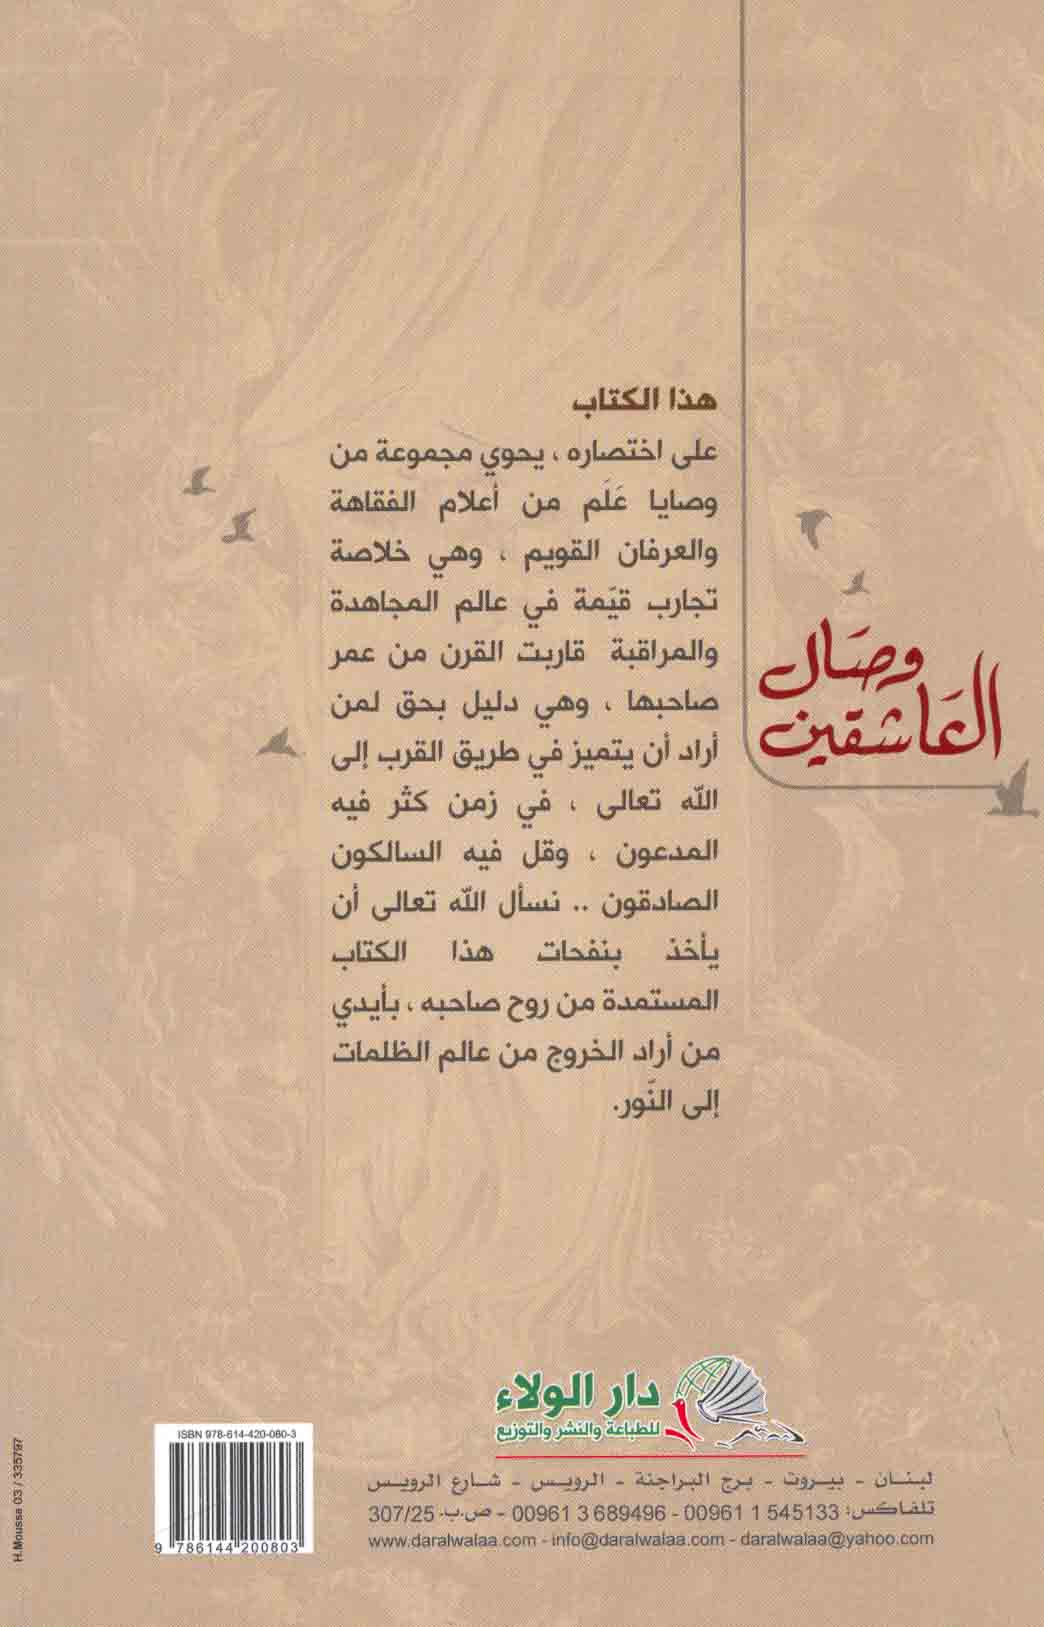 هذا الكتاب
على اختصاره ، يحوي مجموعة من
وصايا عَلَم من أعلام الفقاهة
والعرفان القويم ، وهي خلاصة
تجارب قيّمة في عالم المجاهدة
والمراقبة قاربت القرن من عمر
صاحبها ، وهي دليل بحق لمن
أراد أن يتميز في طريق القرب إلى
الله تعالى ، في زمن كثر فيه
المدعون ، وقل فيه السالكون
الصادقون .. نسأل الله تعالى أن
يأخذ بنفحات هذا الكتاب
المستمدة من روح صاحبه ، بأيدي
من أراد الخروج من عالم الظلمات
إلى النّور.
وصَال
العَاشقين
دار الولاء
للطباعة والنشر والتوزيع
لبنان - بيروت - برج البراجنة - الرويس - شارع الرويس
تلفاكس: 00961 1 545133 - 00961 3 689496 - ص.ب. 307/25
www.daralwalaa.com - info@daralwalaa.com - daralwalaa@yahoo.com
ISBN 978-614-420-060-3
9 786144 200803
H.Moussa 03 / 335797